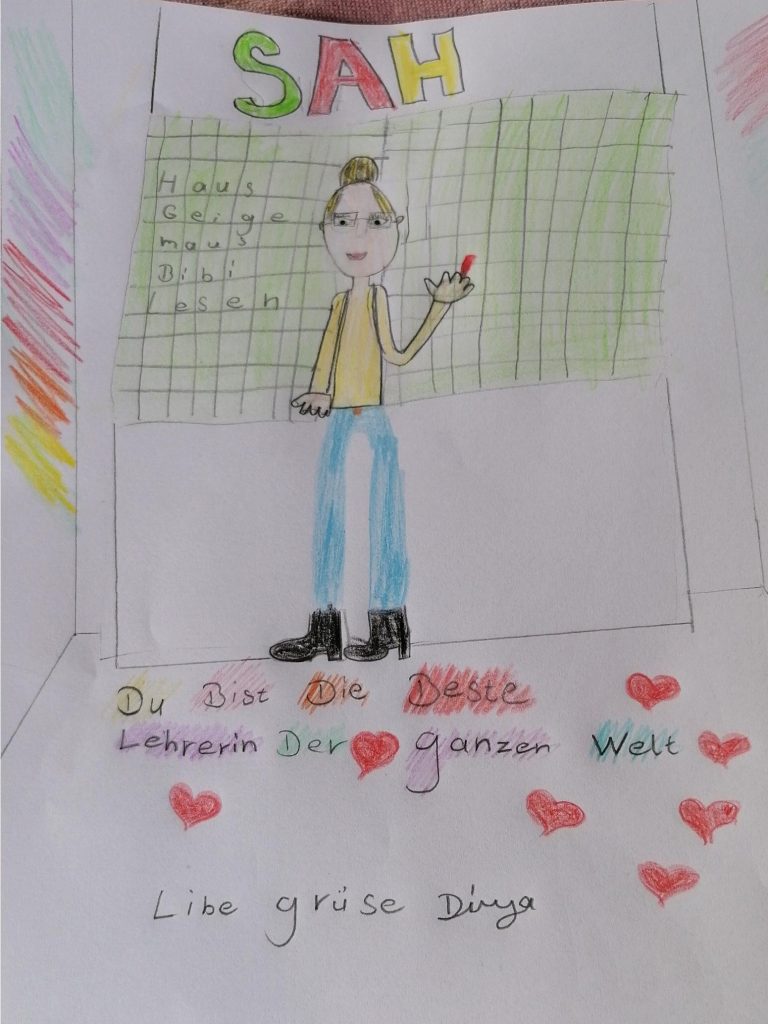 SAH
Haus
Geige
maus
Bibi
Lesen
Du Bist Die Beste
Lehrerin Der ganzen Welt
Libe grüse Divya